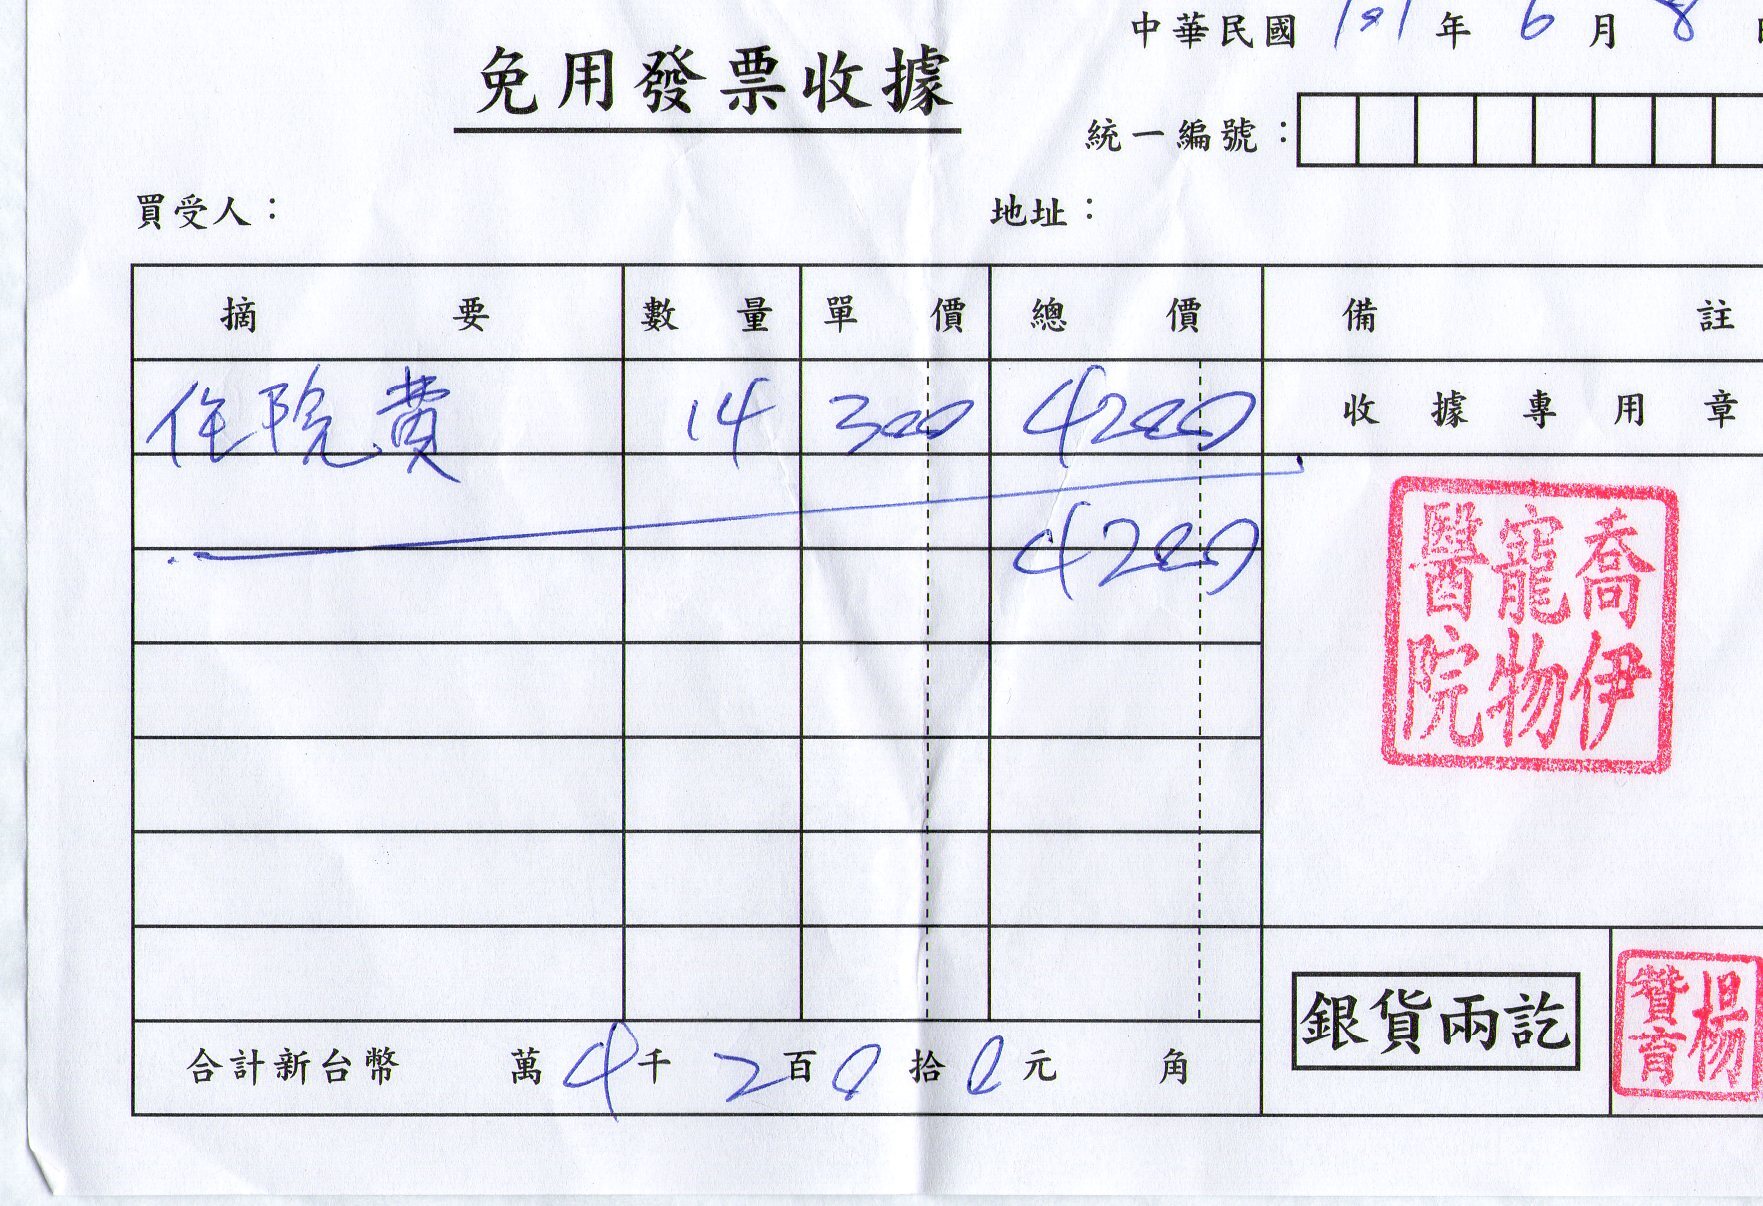 中華民國 101 年 6 月 8 日
免用發票收據
統一編號：
買受人： 地址：
摘要 數量 單價 總價 備註
住院費 14 300 4200 收據專用章
4200
喬伊
寵物
醫院
合計新台幣 萬 4 千 2 百 0 拾 0 元 角 銀貨兩訖
楊
贊育